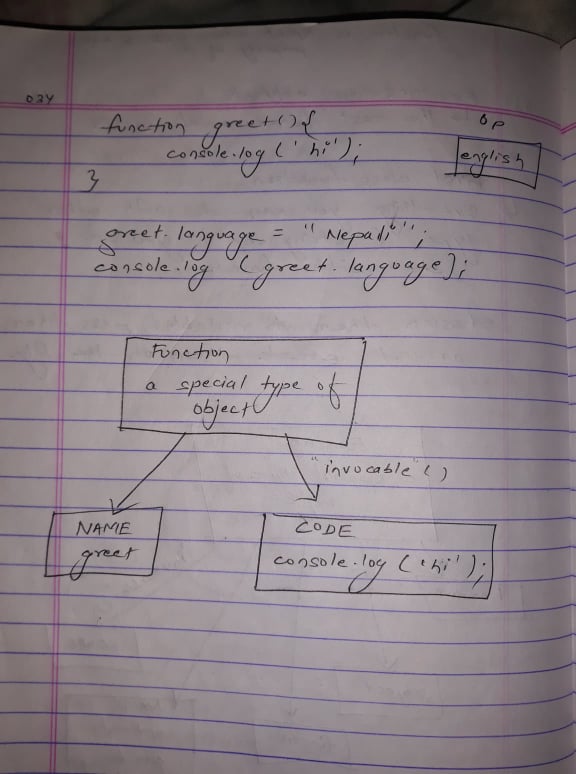 034
function greet() {
console.log ('hi');
}
op
english
greet.language = "Nepali";
console.log (greet.language);
Function
a special type of
object
"invocable" ()
NAME
greet
CODE
console.log ('hi');